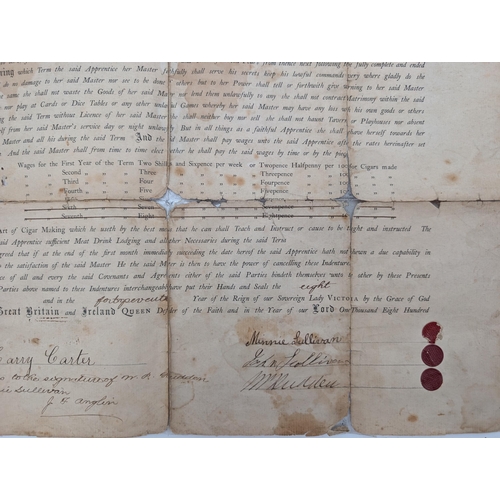 from thence next following the fully complete and ended
ring which Term the said Apprentice her Master faithfully shall serve his secrets keep his lawful commands very where gladly do the
do no damage to her said Master nor see to be done others but to her Power shall tell or forthwith give warning to her said Master
same she shall not waste the Goods of her said Ma nd them unlawfully to any she shall not contract Matrimony within the said
nor play at Cards or Dice Tables or any other unlaw Games whereby her said Master may have any loss with his own goods or others
ng the said Term without Licence of her said Master she shall neither buy nor sell she shall not haunt Taverns or Playhouses nor absent
self from her said Master's service day or night unlawf But in all things as a faithful Apprentice she shall behave herself towards her
Master and all his during the said Term And the said Master shall pay wages unto the said Apprentice after the rates hereinafter set
And the said Master shall from time to time elect whether he shall pay the said wages by time or by the pie
Wages for the First Year of the Term Two Shill and Sixpence per week or Twopence Halfpenny per 100 for Cigars made
Second " Three " " Threepence "
Third " Four " " Fourpence "
Fourth " Five " " Fivepence "
Fifth " Six " " Sixpence "
Sixth " Seven " "
Seventh " Eight " " Eightpence "
Art of Cigar Making which he useth by the best mea that he can shall Teach and Instruct or cause to be taught and instructed The
said Apprentice sufficient Meat Drink Lodging and all other Necessaries during the said Term
greed that if at the end of the first month immediately succeeding the date hereof the said Apprentice hath not shown a due capability in
to the satisfaction of the said Master He the said Master is then to have the power of cancelling these Indentures
ce of all and every the said Covenants and Agreements either of the said Parties bindeth themselves unto other by these Presents
Parties above named to these Indentures interchangeably have put their Hands and Seals the eight
and in the Year of the Reign of our Sovereign Lady VICTORIA by the Grace of God
Great Britain and Ireland QUEEN Defender of the Faith and in the Year of our Lord One Thousand Eight Hundred
Minnie Sullivan
Harry Carter
John Sullivan
to the signature of W R
ie Sullivan
J F Anglin